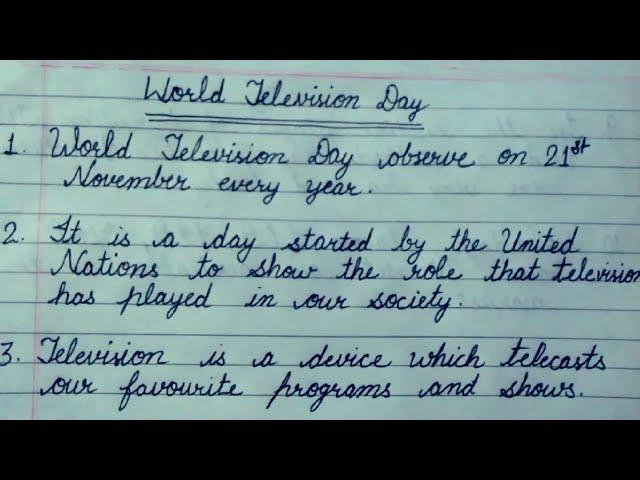 World Television Day
1. World Television Day observe on 21st
November every year.
2. It is a day started by the United
Nations to show the role that television
has played in our society.
3. Television is a device which telecasts
our favourite programs and shows.